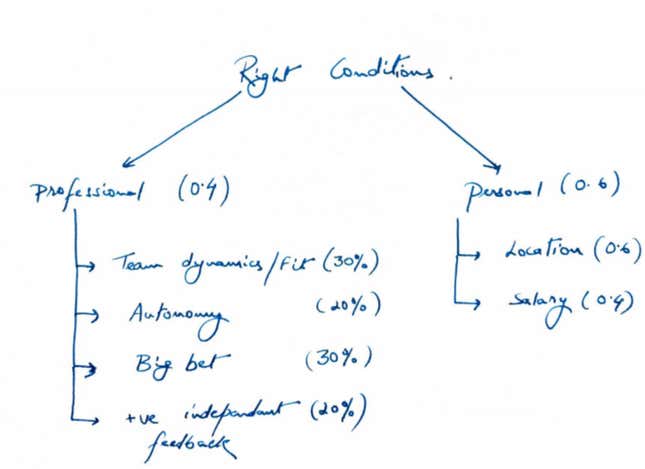 Right Conditions.
Professional (0.4)
Personal (0.6)
Team dynamics/Fit (30%)
Autonomy (20%)
Big bet (30%)
+ve independant (20%)
feedback
Location (0.6)
Salary (0.4)